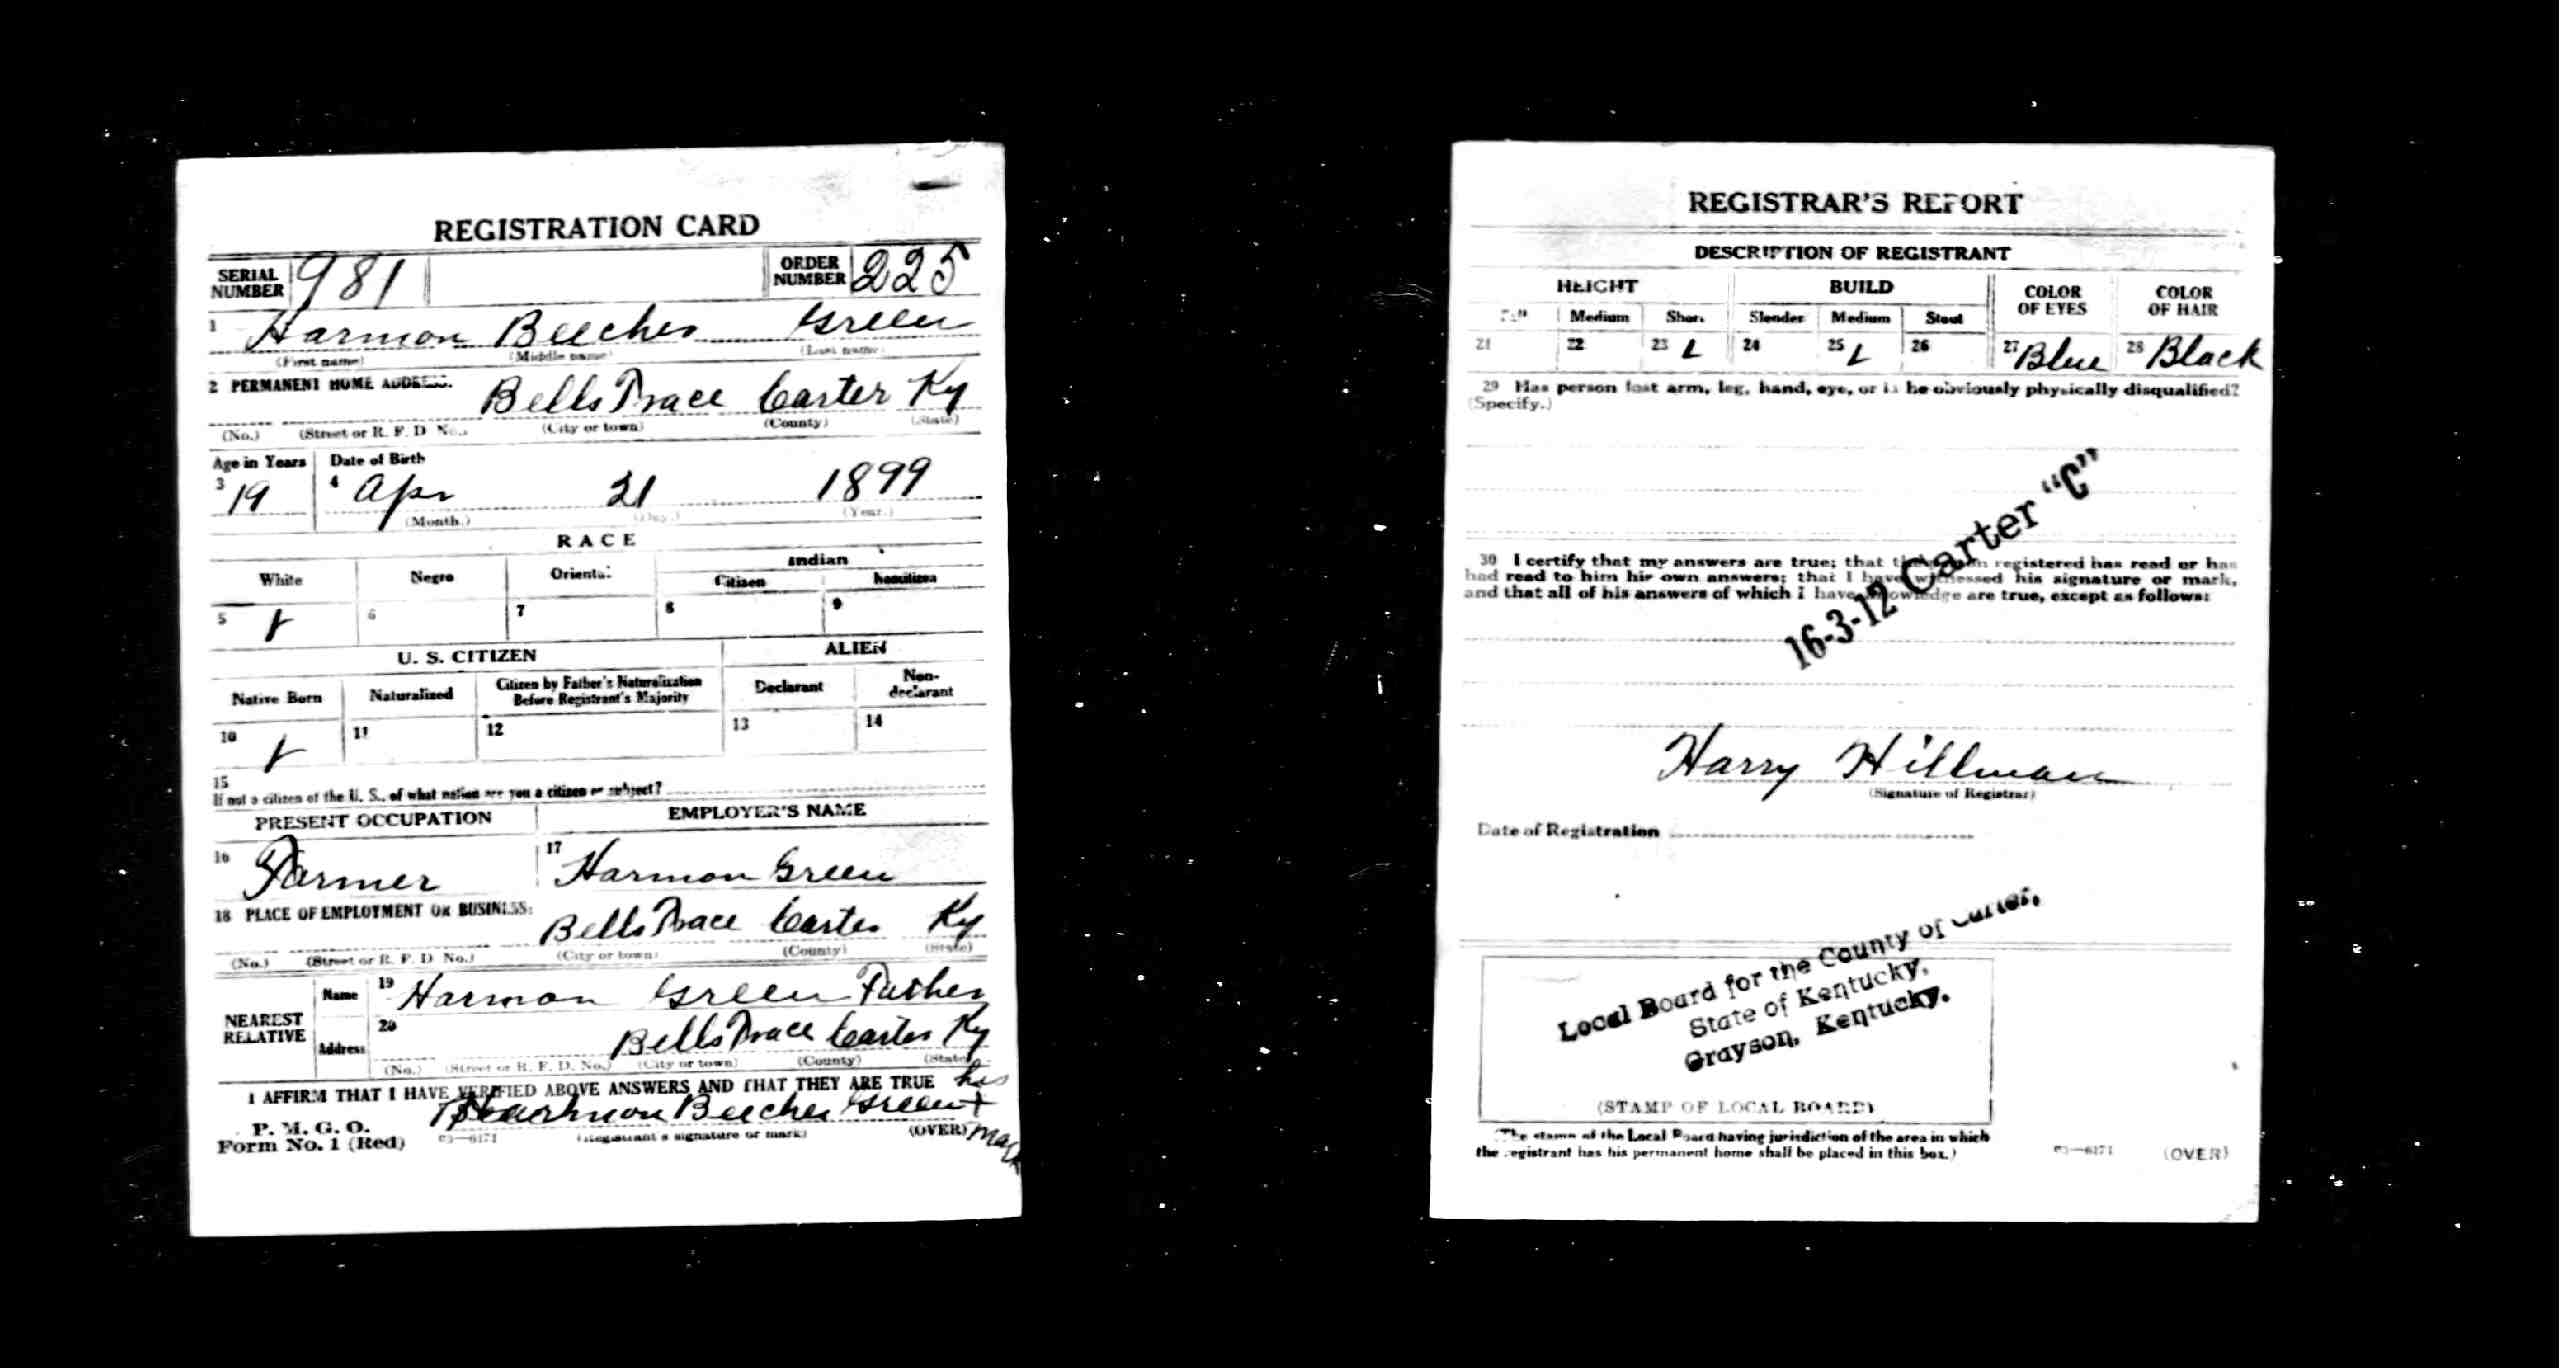 REGISTRATION CARD
SERIAL NUMBER 981 ORDER NUMBER 225
1 Harmon Beecher Green
(First name) (Middle name) (Last name)
2 PERMANENT HOME ADDRESS:
Bells Trace Carter Ky
(No.) (Street or R. F. D. No.) (City or town) (County) (State)
Age in Years Date of Birth
3 19 4 Apr 21 1899
(Month.) (Day.) (Year.)
RACE
White Negro Oriental Indian
Citizen Noncitizen
5 6 7 8 9
U. S. CITIZEN ALIEN
Native Born Naturalized Citizen by Father's Naturalization Before Registrant's Majority Declarant Non-declarant
10 11 12 13 14
15
If not a citizen of the U. S., of what nation are you a citizen or subject?
PRESENT OCCUPATION EMPLOYER'S NAME
16 Farmer 17 Harmon Green
18 PLACE OF EMPLOYMENT OR BUSINESS:
Bells Trace Carter Ky
(No.) (Street or R. F. D. No.) (City or town) (County) (State)
NEAREST RELATIVE
Name 19 Harmon Green Father
Address 20 Bells Trace Carter Ky
(No.) (Street or R. F. D. No.) (City or town) (County) (State)
I AFFIRM THAT I HAVE VERIFIED ABOVE ANSWERS AND THAT THEY ARE TRUE
his
Harmon Beecher Green +
mark
P. M. G. O.
Form No. 1 (Red) 03—6171 (Registrant's signature or mark) (OVER)
REGISTRAR'S REPORT
DESCRIPTION OF REGISTRANT
HEIGHT BUILD COLOR OF EYES COLOR OF HAIR
Tall Medium Short Slender Medium Stout
21 22 23 24 25 26 27 Blue 28 Black
29 Has person lost arm, leg, hand, eye, or is he obviously physically disqualified?
(Specify.)
16-3-12 Carter "C"
30 I certify that my answers are true; that the person registered has read or has
had read to him his own answers; that I have witnessed his signature or mark,
and that all of his answers of which I have knowledge are true, except as follows:
Harry Hillman
(Signature of Registrar)
Date of Registration
Local Board for the County of Carter,
State of Kentucky,
Grayson, Kentucky.
(STAMP OF LOCAL BOARD)
(The stamp of the Local Board having jurisdiction of the area in which
the registrant has his permanent home shall be placed in this box.)
03—6171 (OVER)